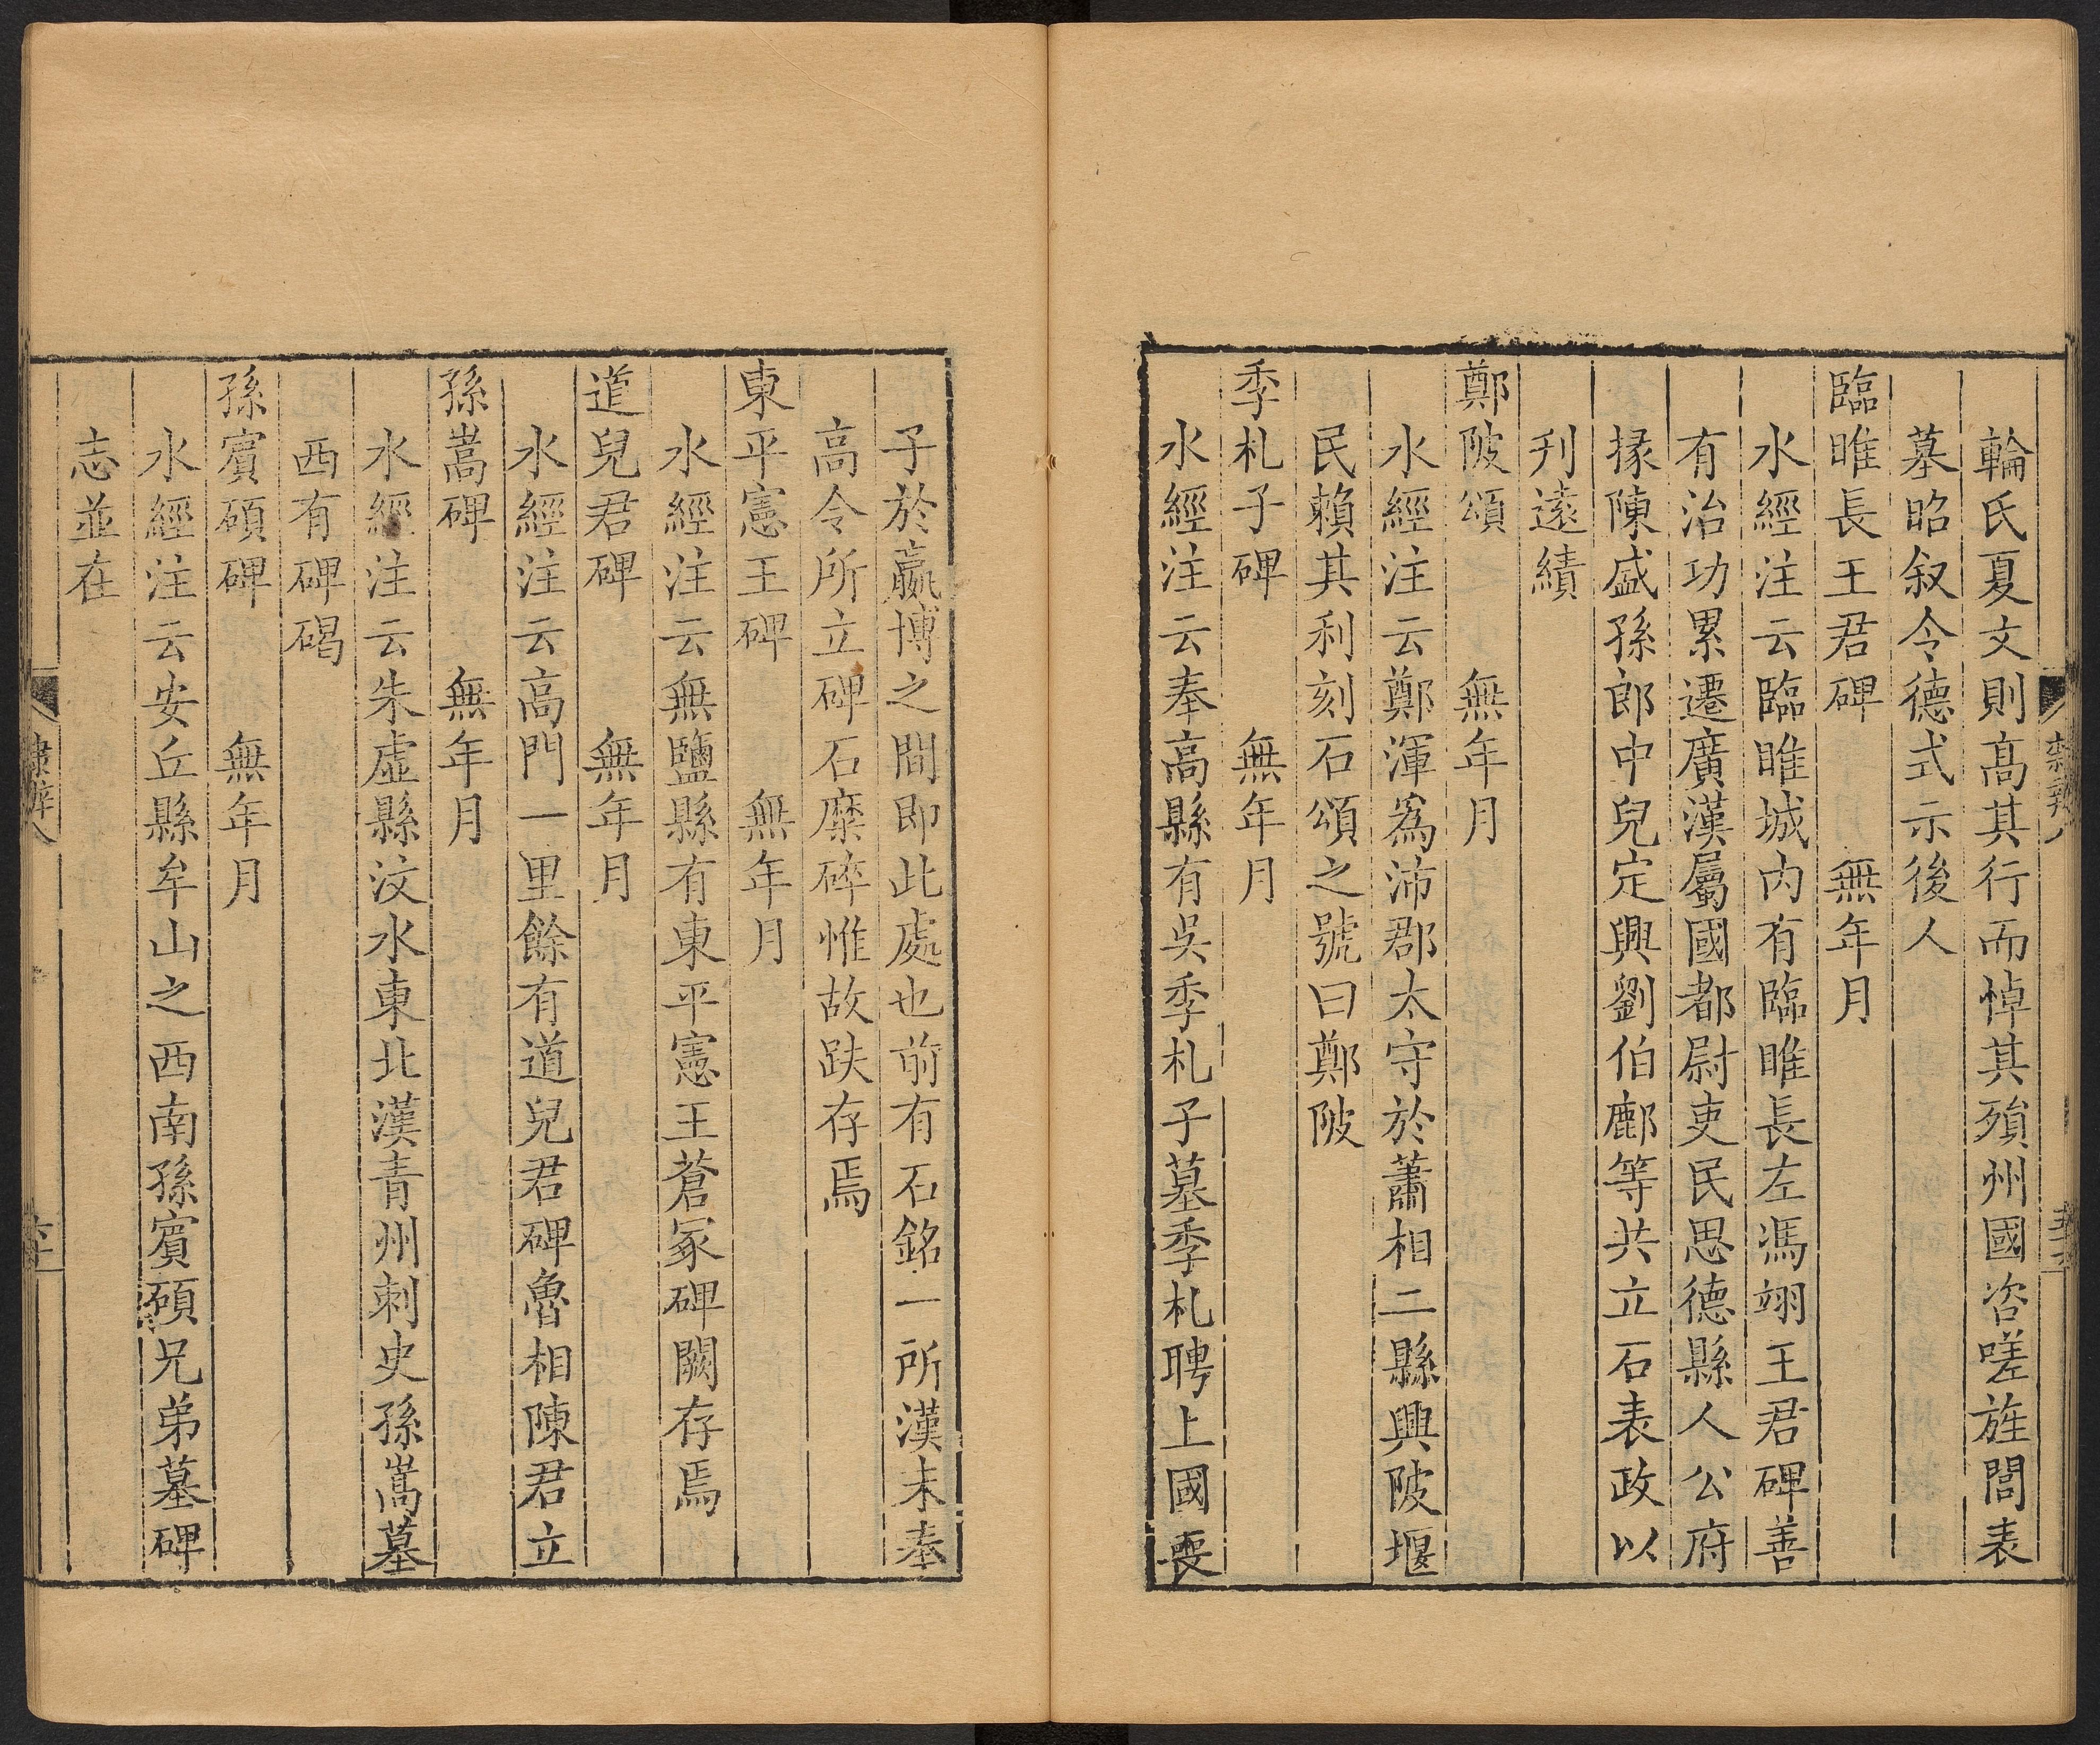 輪氏夏文則高其行而悼其殞州國咨嗟旌閭表
墓昭叙令德式示後人
臨睢長王君碑　無年月
水經注云臨睢城內有臨睢長左馮翊王君碑善
有治功累遷廣漢屬國都尉吏民思德縣人公府
掾陳盛孫郎中兒定興劉伯鄜等共立石表政以
刋遠績
鄭陂頌　無年月
水經注云鄭渾爲沛郡太守於蕭相二縣興陂堰
民賴其利刻石頌之號曰鄭陂
季札子碑　無年月
水經注云奉高縣有吳季札子墓季札聘上國喪
子於嬴博之間即此處也前有石銘一所漢末奉
高令所立碑石糜碎惟故趺存焉
東平憲王碑　無年月
水經注云無鹽縣有東平憲王蒼冢碑闕存焉
道兒君碑　無年月
水經注云高門一里餘有道兒君碑魯相陳君立
孫嵩碑　無年月
水經注云朱虛縣汶水東北漢青州刺史孫嵩墓
西有碑碣
孫賓碩碑　無年月
水經注云安丘縣牟山之西南孫賓碩兄弟墓碑
志並在
隸辨八